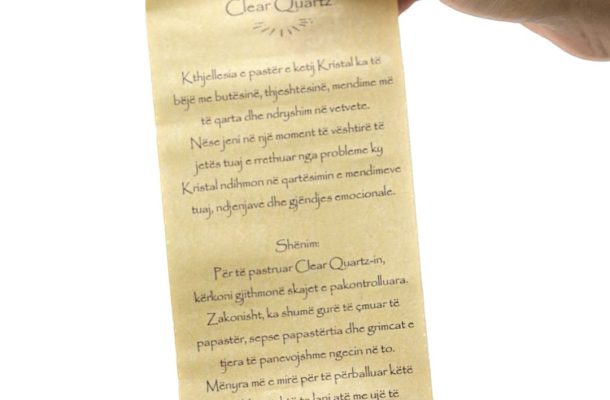 Clear Quartz
Kthjellesia e pastër e ketij Kristal ka të
bëjë me butësinë, thjeshtësinë, mendime më
të qarta dhe ndryshim në vetvete.
Nëse jeni në një moment të vështirë të
jetës tuaj e rrethuar nga probleme ky
Kristal ndihmon në qartësimin e mendimeve
tuaj, ndjenjave dhe gjëndjes emocionale.
Shënim:
Për të pastruar Clear Quartz-in,
kërkoni gjithmonë skajet e pakontrolluara.
Zakonisht, ka shumë gurë të çmuar të
papastër, sepse papastërtia dhe grimcat e
tjera të panevojshme ngecin në to.
Mënyra më e mirë për të përballuar këtë
të lani atë me ujë të